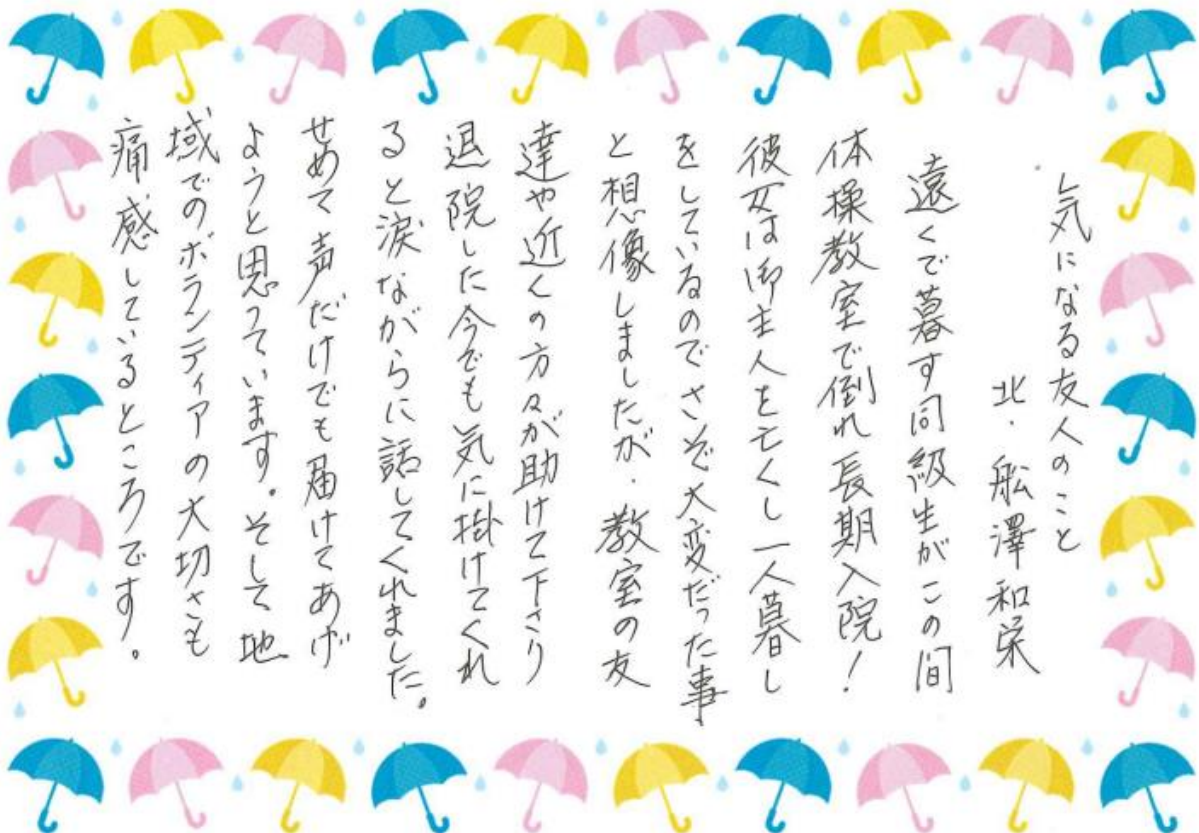 気になる友人のこと
北・舩澤和栄
遠くで暮す同級生がこの間
体操教室で倒れ長期入院!
彼女は御主人を亡くし一人暮し
をしているのでさぞ大変だった事
と想像しましたが、教室の友
達や近くの方々が助けて下さり
退院した今でも気に掛けてくれ
ると涙ながらに話してくれました。
せめて声だけでも届けてあげ
ようと思っています。そして地
域でのボランティアの大切さも
痛感しているところです。